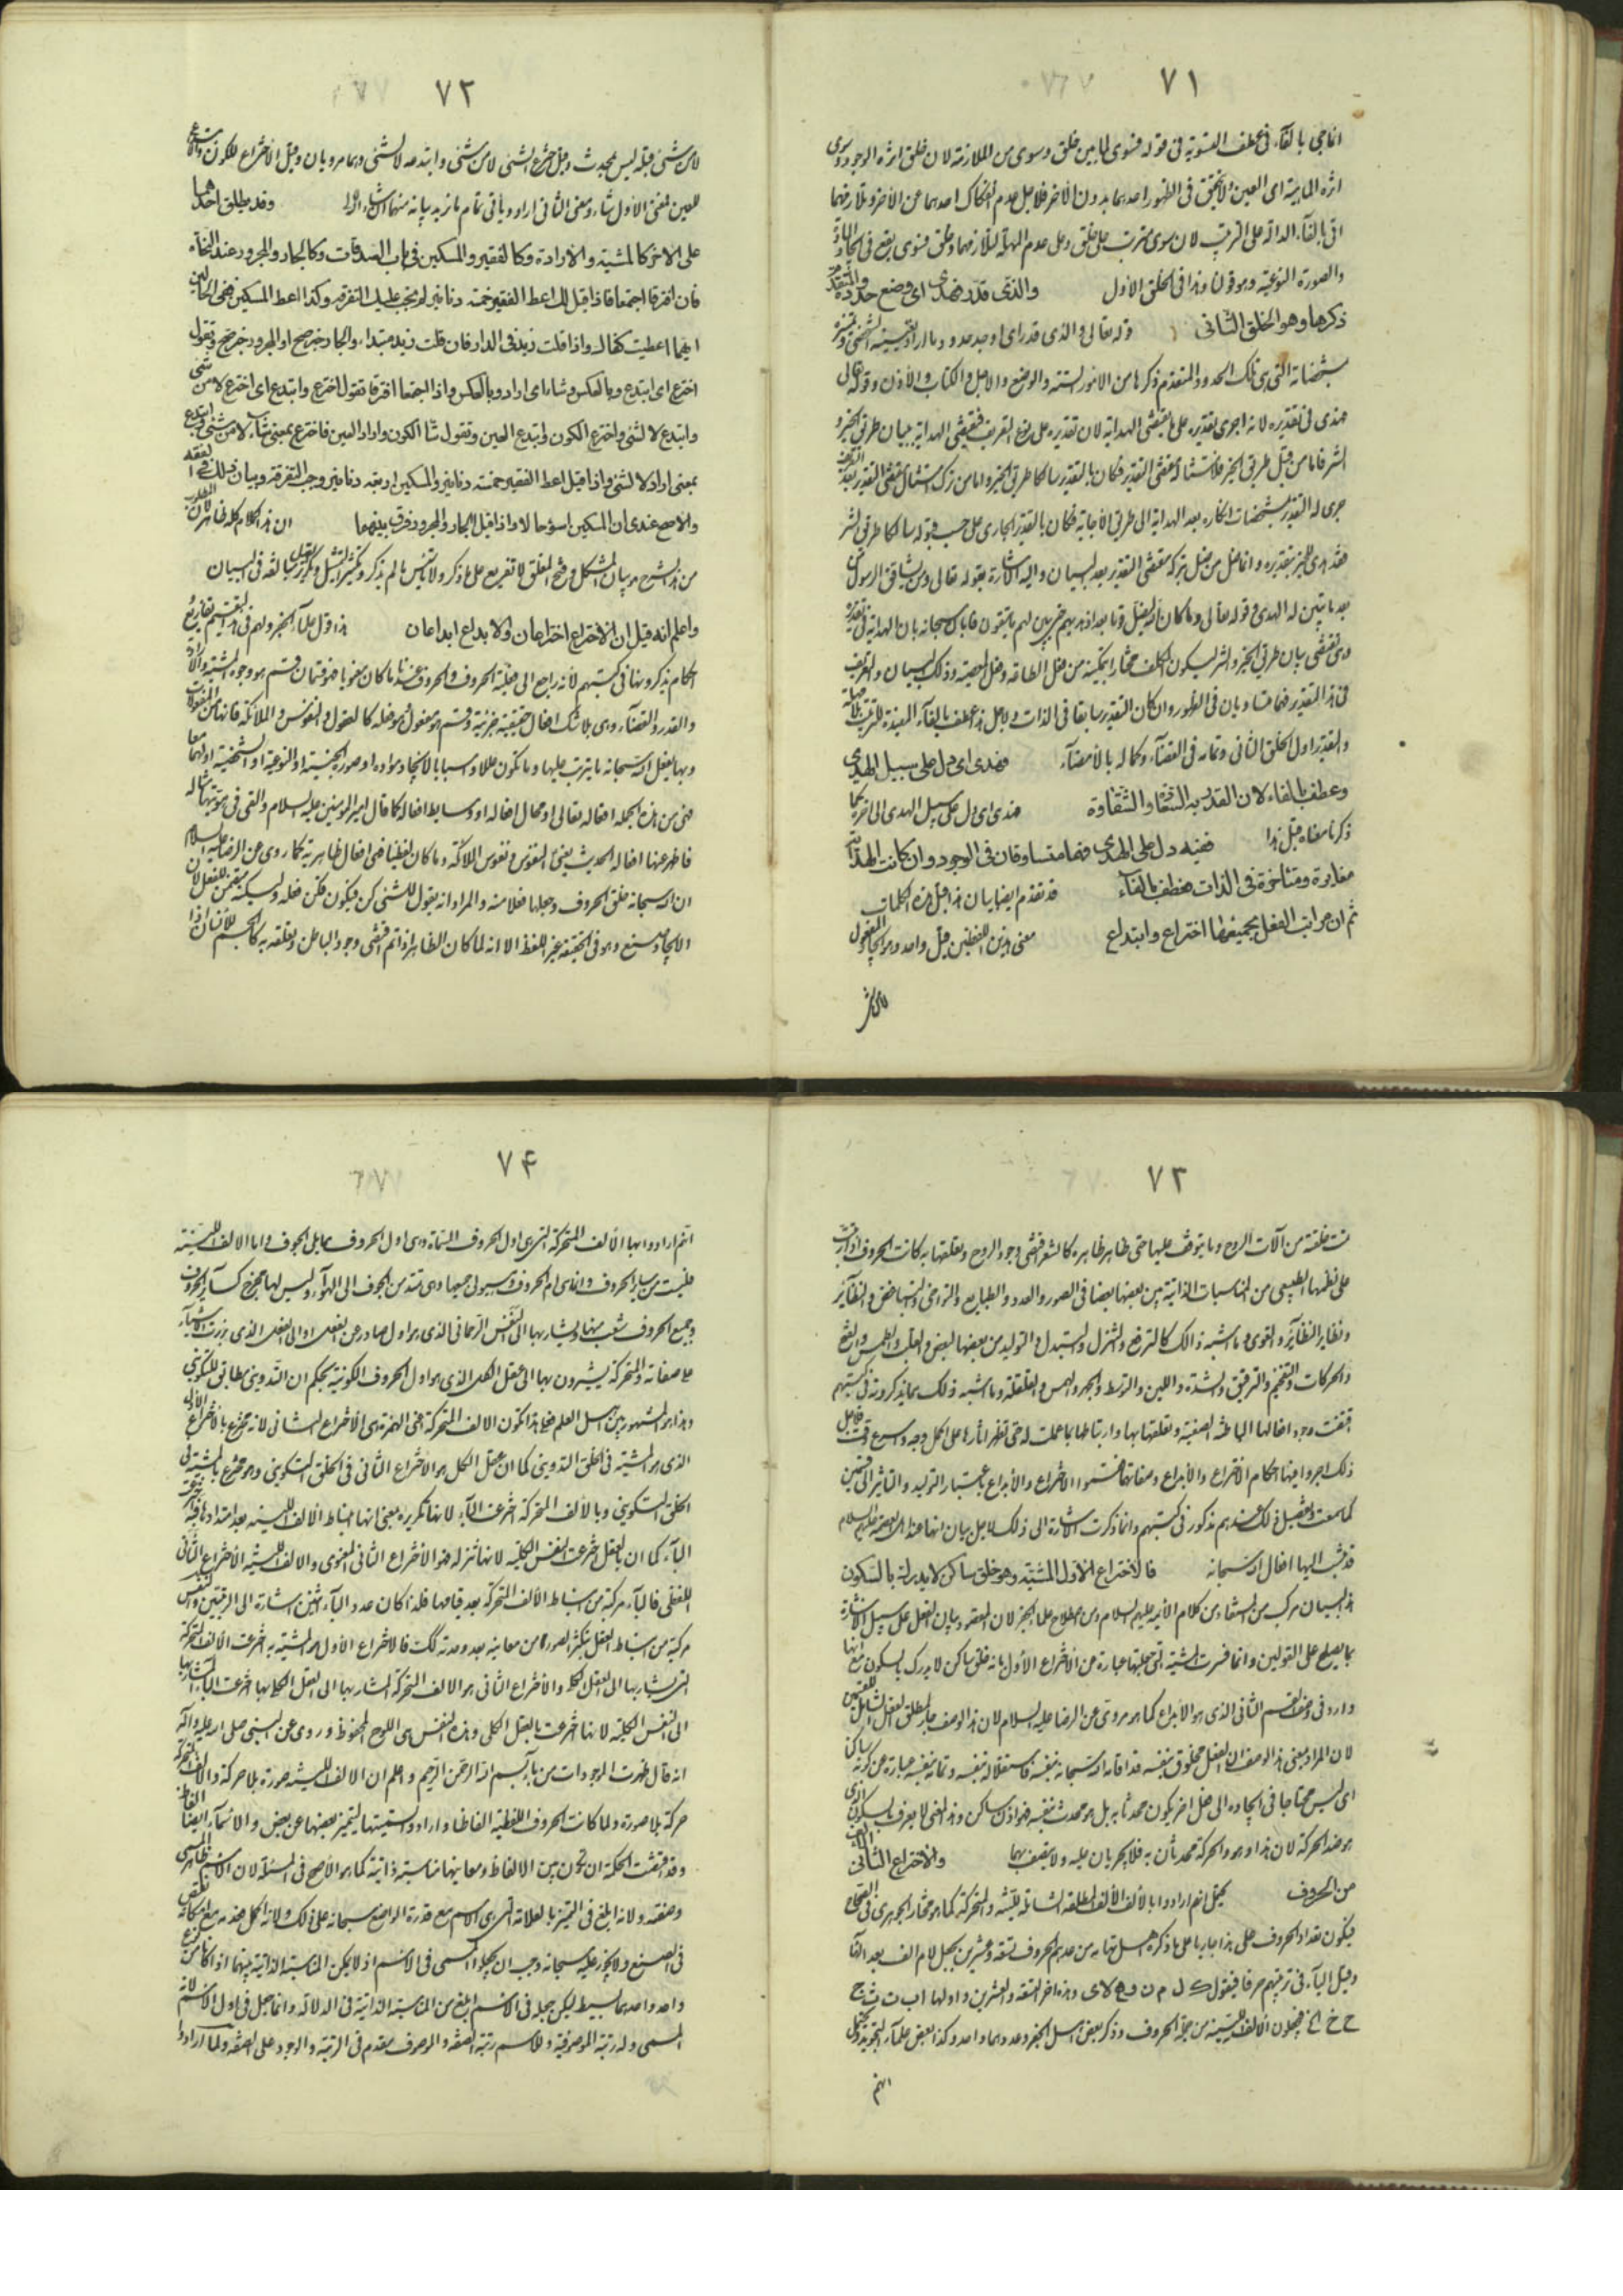 ٧١
انما جئ بالفآء فى عطف التسوية فى قوله فسوى لما بين خلق وسوى من الملازمة لان خلق اثره الوجود وسوى
اثره الماهية اى العين ولا يتحقق فى الظهور احدهما بدون الاخر فلاجل عدم انفكاك احدهما عن الاخر وتلازمهما
اتى بالفآء الدالة على الترتيب لان سوى مترتب على خلق وعلى عدم المهلة لتلازمهما وخلق فسوى يقع فى ايجاد المادة
والصورة النوعية وهو قولنا وهذا فى الخلق الاول والذى قدر فهدى اى وضع حدوده المتقدم
ذكرها وهو الخلق الثانى قوله تعالى والذى قدر اى اوجد حدود ما اراد
مشخصاته التى هى تلك الحدود المتقدم ذكرها من الامور الستة والوضع والاجل والكتاب والاذن وقوله تعالى
فهدى فى تقديره لانه اجرى تقديره على ما يقتضى الهداية لان تقديره على نوع التعريف فيقتضى الهداية ببيان طريق الخير و
الشر فاما من قبل طريق الخير
جرى له التقدير بمشخصات انكاره بعد الهداية الى طريق الاجابة فكان بالتقدير الجارى على حسب قبوله سالكا طريق الشر
فقد هدى للخير بتقديره وانما ضل من ضل بتركه مقتضى التقدير بعد البيان واليه الاشارة بقوله تعالى ومن يشاقق الرسول من
بعد ما تبين له الهدى وقوله تعالى وما كان الله ليضل قوما بعد اذ هديهم حتى يبين لهم ما يتقون فابان سبحانه بان الهداية فى تقديره
وهى تقتضى بيان طريق الخير والشر ليكون المكلف مختارا بتمكينه من فعل الطاعة وفعل المعصية وذلك البيان والتعريف
فى هذا التقدير فهما متساويان فى الظهور وان كان التقدير سابقا فى الذات ولاجل هذا عطف بالفآء المفيدة للترتيب بلا مهلة
والتقدير اول الخلق الثانى وتمامه فى القضآء وكماله بالامضآء فهدى اى دل على سبيل الهدى
وعطف بالفاء لان القدر به السعادة والشقاوة فهدى اى دل على سبيل الهدى الى اخره كما
ذكرنا معناه قبل هذا ففيه دل على الهدى فهما متساوقان فى الوجود وان كانت الهداية
مغايرة ومتاخرة فى الذات فعطف بالفآء قد تقدم ايضا بيان هذا قبل هذه الكلمات
ثم ان مراتب الفعل بجميعها اختراع وابتداع معنى هذين اللفظين قيل واحد وهو ايجاد المفعول
لا من شئ
٧٢
لا من شئ قبله ليس بمحدث وقيل اخترع الشئ لا من شئ وابتدعه لا لشئ وهما مرويان وقيل الاختراع للكون والابتداع
للعين بمعنى الاول شاء وبمعنى الثانى اراد وياتى تمام ما نريد بيانه منهما انشاء الله وقد يطلق احدهما
على الاخر كالمشية والارادة وكالفقير والمسكين فى باب الصدقات وكالجار والمجرور عند النحاة
فان افترقا اجتمعا فاذا قيل لك اعط الفقير خمسة دنانير لم يجب عليك التفرقة وكذا اعط المسكين ففى الحالين
ايهما اعطيت كفاك واذا قلت زيد فى الدار فان قلت زيد مبتداء والجار خبر صح او المجرور خبر صح وتقول
اخترع اى ابتدع وبالعكس وشاء اى اراد وبالعكس واذا اجتمعا افترقا تقول اخترع وابتدع اى اخترع لا من شئ
وابتدع لا لشئ واخترع الكون وابتدع العين وتقول شاء الكون واراد العين فاخترع بمعنى شاء لا من شئ وابتدع
بمعنى اراد لا لشئ واذا قيل اعط الفقير خمسة دنانير والمسكين اربعة دنانير وجب التفرقة وبيان ذلك فى الفقه
والاصح عندى ان المسكين اسوء حالا واذا قيل الجار والمجرور فرق بينهما ان هذا الكلام كله ظاهر لان
من هذا الشرح هو بيان المشكل وفتح المغلق لا تفريع على ما ذكر ولا تاسيس ما لم يذكر وتكثير التمثيل وتكرير فى البيان
واعلم انه قيل ان الاختراع اختراعان والابداع ابداعان هذا قول علمآء الحروف ولهم فى هذا التقسيم تفاريع
احكام يذكرونها فى كتبهم لانه راجع الى فعلية الحروف والحروف عندنا ما كان معنويا فهو قسمان قسم هو وجوه المشية والارادة
والقدر والقضآء وهى بلا شك افعال حقيقية جزئية وقسم هو مفعول هو فعله كالعقول والنفوس والملائكة فانها من المفعولات
وبها يفعل الله سبحانه ما يترتب عليها وما تكون عللا واسبابا لايجاد مواده او صوره الجنسية او النوعية او الشخصية اولهما معا
فهى من هذه الجملة افعاله تعالى او محال افعاله او وسايط افعاله كما قال امير المؤمنين عليه السلام والقى فى هويتها مثاله
فاظهر عنها افعاله الحديث يعنى النفوس ونفوس الملائكة وما كان لفظيا فهى افعال ظاهرية كما روى عن الرضا عليه السلام
ان الله سبحانه خلق الحروف وجعلها فعلا منه والمراد انه يقول للشئ كن فيكون فكن فعله وليس كن متضمن للفعل لان
الايجاد صنع وهو فى الحقيقة غير اللفظ الا انه لما كان الظاهر اذا تم اقتضى وجود الباطن وتعلقه به كالجسم للانسان اذا
٧٣
تمت خلقته من آلات الروح وما يتوقف عليها حتى ظاهر ظاهره كالشعر اقتضى وجود الروح وتعلقها به كانت الحروف اذا تمت
على نظمها الطبيعى من المناسبات الذاتية بين بعضها بعضا فى الصور والعدد والطبايع والتواخى والتباغض والنظاير
ونظاير النظاير والقوى وما اشبه ذلك كالترفع والتنزل والتبدل والتوليد من بعضها لبعض والقلب والهمس والفتح
والحركات والتفخيم والترقيق والشدة واللين والتوسط والجهر والهمس والقلقلة وما اشبه ذلك مما يذكرونه فى كتبهم
اقتضت وجود افعالها الباطنة الصفتية وتعلقها بها وارتباطها بما عملت له حتى تظهر اثارها على اكمل وجه واسرع وقت فلاجل
ذلك اجروا فيها احكام الاختراع والابداع وصفاتهما فقسموا الاختراع والابداع باعتبار التوليد والتاثير الى قسمين
كما سمعت وتفصيل ذلك عندهم مذكور فى كتبهم وانما ذكرت الاشارة الى ذلك لاجل بيان انها عند اهل العصمة عليهم السلام
قد نسب اليها افعال الله سبحانه فالاختراع الاول المشية وهو خلق ساكن لا يدرك بالسكون
هذا البيان مركب من المستفاد من كلام الائمة عليهم السلام ومن اصطلاح علمآء الحرف لان المقصود بيان الفعل على سبيل الاشارة
بما يصلح على القولين وانما فسرت المشية التى جعلتها عبارة عن الاختراع الاول بانه خلق ساكن لا يدرك بالسكون مع انها
وارد فى وصف القسم الثانى الذى هو الابداع كما هو مروى عن الرضا عليه السلام لان هذا الوصف جار لمطلق الفعل الشامل للقسمين
لان المراد بمعنى هذا الوصف ان الفعل مخلوق بنفسه قد اقامه الله سبحانه بنفسه فاستقلاله بنفسه وتمامه بنفسه عبارة عن كونه ساكنا
اى ليس محتاجا فى ايجاده الى فعل اخر يكون محدثا به بل هو محدث بنفسه فهو اذن ساكن وهذا المعنى لا يعرف بالسكون الذى
هو ضد الحركة لان هذا وهو والحركة محدثان به فلا يجريان عليه ولا يتصف بهما والاختراع الثانى الالف
من الحروف يحتمل انهم ارادوا بالالف الالف المطلقة الشاملة للينة والمتحركة كما هو مختار الجوهرى فى الصحاح
فيكون تعداد الحروف على هذا جاريا على ما ذكره اهل تهامه من عدهم الحروف تسعة وعشرين بجعل لام الف بعد الهآء
وقبل اليآء فى ترتيبهم حرفا فيقول ك ل م ن و ه لا ى وهذه اخر التسعة والعشرين واولها ا ب ت ث ج
ح خ الخ فيجعلون الالف اللينة من جملة الحروف وذكر بعض اهل الجفر وعدوهما واحد وكذا بعض علمآء التجويد يحتمل
انهم
٧۴
انهم ارادوا بها الالف المتحركة التى هى اول الحروف المسماة وهى اول الحروف مما يلى الجوف واما الالف اللينة
فليست من ساير الحروف وانما هى ام الحروف وهيولى جميعها وهى تمتد من الجوف الى الهوآء وليس لها مخرج كسآير الحروف
وجميع الحروف شعب منها ويشار بها الى النفس الرحمانى الذى هو اول صادر عن الفعل او الى الفعل الذى برزت الاشيآء
على صفاته والمتحركة يشيرون بها الى عقل الكل الذى هو اول الحروف الكونية بحكم ان التدوينى مطابق للتكوينى
وهذا هو المشهور بين اهل العلم فعلى هذا تكون الالف المتحركة فهى الهمزة هى الاختراع الثانى لانه مخترع بالاختراع الاول
الذى هو المشية فى الخلق التدوينى كما ان عقل الكل هو الاختراع الثانى فى الخلق التكوينى وهو مخترع بالمشية فى
الخلق التكوينى وبالالف المتحركة اخترعت البآء لانها تكريره بمعنى انها انبساط الالف اللينة بعد امتدادها فهى
البآء كما ان بالعقل اخترعت النفس الكلية لانها تنزله فهو الاختراع الثانى المعنوى والالف اللينة الاختراع الثانى
اللفظى فالبآء مركبة من انبساط الالف المتحركة بعد قيامها فلذا كان عدد البآء اثنين اشارة الى الرتبتين والنفس
مركبة من انبساط العقل بتكثر الصورة من معانيه بعد وحدته لك فالاختراع الاول هو المشية به اخترعت الالف المتحركة
التى يشار بها الى العقل الكلى والاختراع الثانى هو الالف المتحركة المشار بها الى العقل الكلى بها اخترعت البآء المشار بها
الى النفس الكلية لانها اخترعت بالعقل الكلى وهذه النفس هى اللوح المحفوظ وروى عن النبى صلى الله عليه وآله
انه قال ظهرت الموجودات من بآء بسم الله الرحمن الرحيم واعلم ان الالف اللينة صورة بلا حركة والالف المتحركة
حركة بلا صورة ولما كانت الحروف اللفظية الفاظا وارادوا تسميتها ليتميز بعضها عن بعض والاسمآء ايضا الفاظ
وقد اقتضت الحكمة ان تكون بين الالفاظ ومعانيها مناسبة ذاتية كما هو الاصح فى المسئلة لان الاسم ظاهر المسمى
وصفته ولانه ابلغ فى التميز بالعلامة التى هى الاسم مع قدرة الواضع سبحانه على ذلك ولانه اكمل
فى الصنع ولا يجوز عليه سبحانه وجب ان يجعلوا المسمى فى الاسم اذ لا يمكن المناسبة الذاتية بينهما اذ كانا من نوع
واحد واحدهما بسيط ليكن بجعله فى الاسم ابلغ من المناسبة الذاتية فى الدلالة وانما جعل فى اول الاسم لانه
المسمى وله رتبة الموصوفية وللاسم رتبة الصفة والموصوف مقدم فى الرتبة والوجود على الصفة ولما ارادوا